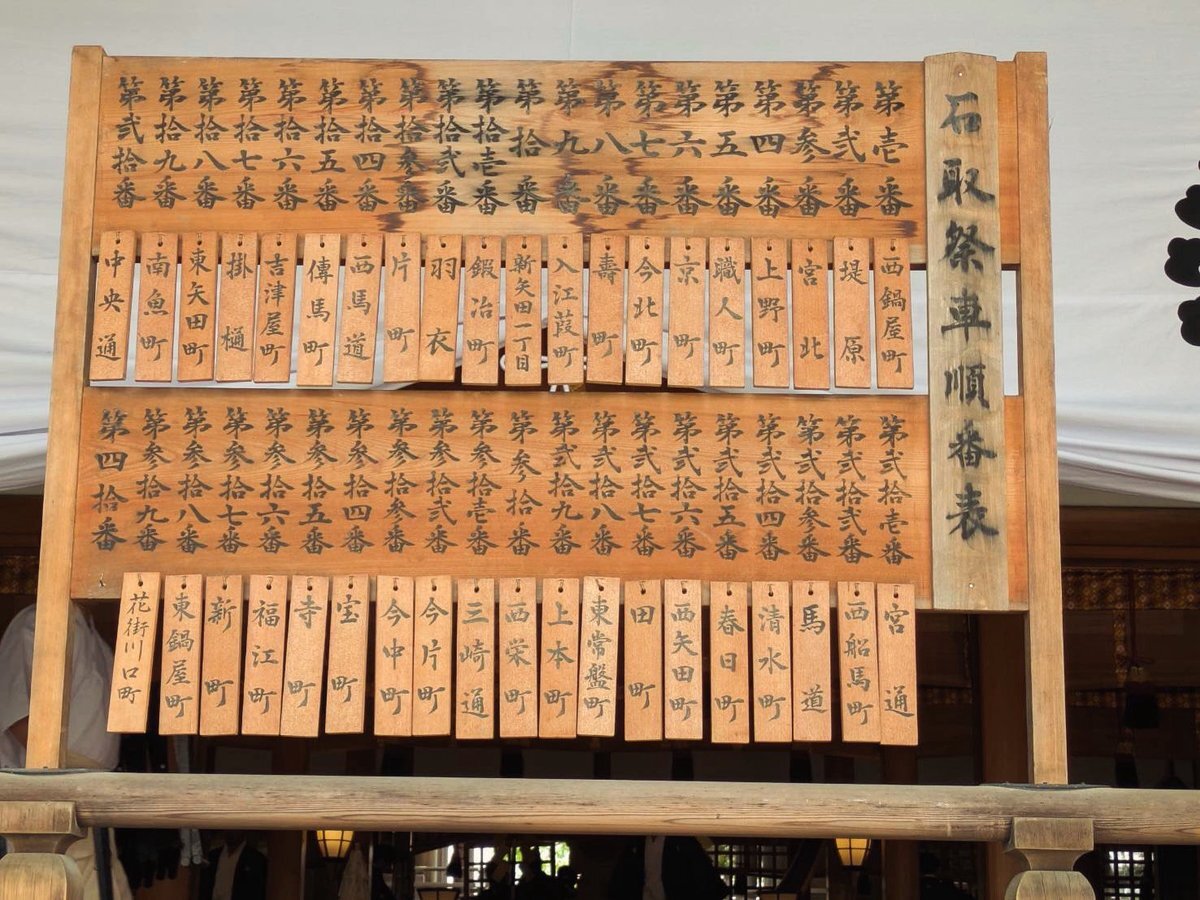 石取祭車順番表
第壱番
第弐番
第参番
第四番
第五番
第六番
第七番
第八番
第九番
第拾番
第拾壱番
第拾弐番
第拾参番
第拾四番
第拾五番
第拾六番
第拾七番
第拾八番
第拾九番
第弐拾番
西鍋屋町
堤原
宮北
上野町
職人町
京町
今北町
壽町
入江葭町
新矢田一丁目
鍜冶町
羽衣
片町
西馬道
傳馬町
吉津屋町
掛樋
東矢田町
南魚町
中央通
第弐拾壱番
第弐拾弐番
第弐拾参番
第弐拾四番
第弐拾五番
第弐拾六番
第弐拾七番
第弐拾八番
第弐拾九番
第参拾番
第参拾壱番
第参拾弐番
第参拾参番
第参拾四番
第参拾五番
第参拾六番
第参拾七番
第参拾八番
第参拾九番
第四拾番
宮通
西船馬町
馬道
清水町
春日町
西矢田町
田町
東常盤町
上本町
西栄町
三崎通
今片町
今中町
宝町
寺町
福江町
新町
東鍋屋町
花街川口町